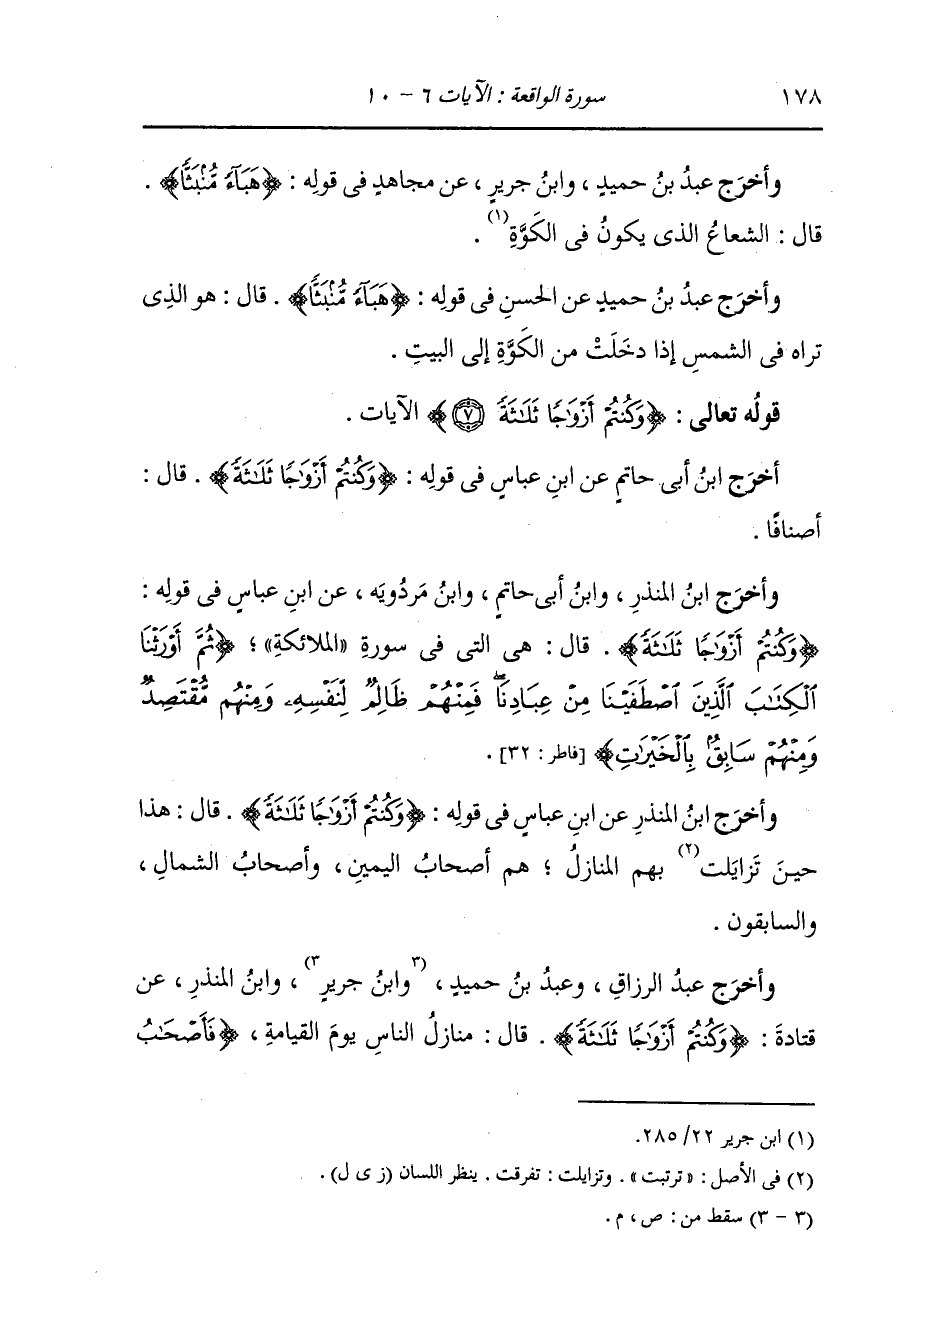 ١٧٨ سورة الواقعة : الآيات ٦ - ١٠
وأخرَج عبدُ بنُ حميدٍ ، وابنُ جريرٍ ، عن مجاهدٍ فى قولِه : ﴿هَبَآءً مُّنۢبَثًّا﴾ .
قال : الشعاعُ الذى يكونُ فى الكَوَّةِ(١) .
وأخرَج عبدُ بنُ حميدٍ عن الحسنِ فى قولِه : ﴿هَبَآءً مُّنۢبَثًّا﴾ . قال : هو الذِى
تراه فى الشمسِ إذا دخَلَتْ من الكَوَّةِ إلى البيتِ .
قولُه تعالى : ﴿وَكُنتُمْ أَزْوَٰجًا ثَلَٰثَةً ٧﴾ الآيات .
أخرَج ابنُ أبى حاتمٍ عن ابنِ عباسٍ فى قولِه : ﴿وَكُنتُمْ أَزْوَٰجًا ثَلَٰثَةً﴾ . قال :
أصنافًا .
وأخرَج ابنُ المنذرِ ، وابنُ أبى حاتمٍ ، وابنُ مَردُويَه ، عن ابنِ عباسٍ فى قولِه :
﴿وَكُنتُمْ أَزْوَٰجًا ثَلَٰثَةً﴾ . قال : هى التى فى سورةِ «الملائكةِ» ؛ ﴿ثُمَّ أَوْرَثْنَا
ٱلْكِتَٰبَ ٱلَّذِينَ ٱصْطَفَيْنَا مِنْ عِبَادِنَا ۖ فَمِنْهُمْ ظَالِمٌ لِّنَفْسِهِۦ وَمِنْهُم مُّقْتَصِدٌ
وَمِنْهُمْ سَابِقٌۢ بِٱلْخَيْرَٰتِ﴾ [فاطر : ٣٢] .
وأخرَج ابنُ المنذرِ عن ابنِ عباسٍ فى قولِه : ﴿وَكُنتُمْ أَزْوَٰجًا ثَلَٰثَةً﴾ . قال : هذا
حينَ تَزايَلت(٢) بهم المنازلُ ؛ هم أصحابُ اليمينِ ، وأصحابُ الشمالِ ،
والسابقون .
وأخرَج عبدُ الرزاقِ ، وعبدُ بنُ حميدٍ ، (٣وابنُ جريرٍ٣) ، وابنُ المنذرِ ، عن
قتادةَ : ﴿وَكُنتُمْ أَزْوَٰجًا ثَلَٰثَةً﴾ . قال : منازلُ الناسِ يومَ القيامةِ ، ﴿فَأَصْحَٰبُ
(١) ابن جرير ٢٢/ ٢٨٥.
(٢) فى الأصل : «ترتبت» . وتزايلت : تفرقت . ينظر اللسان (ز ى ل) .
(٣ - ٣) سقط من : ص ، م .